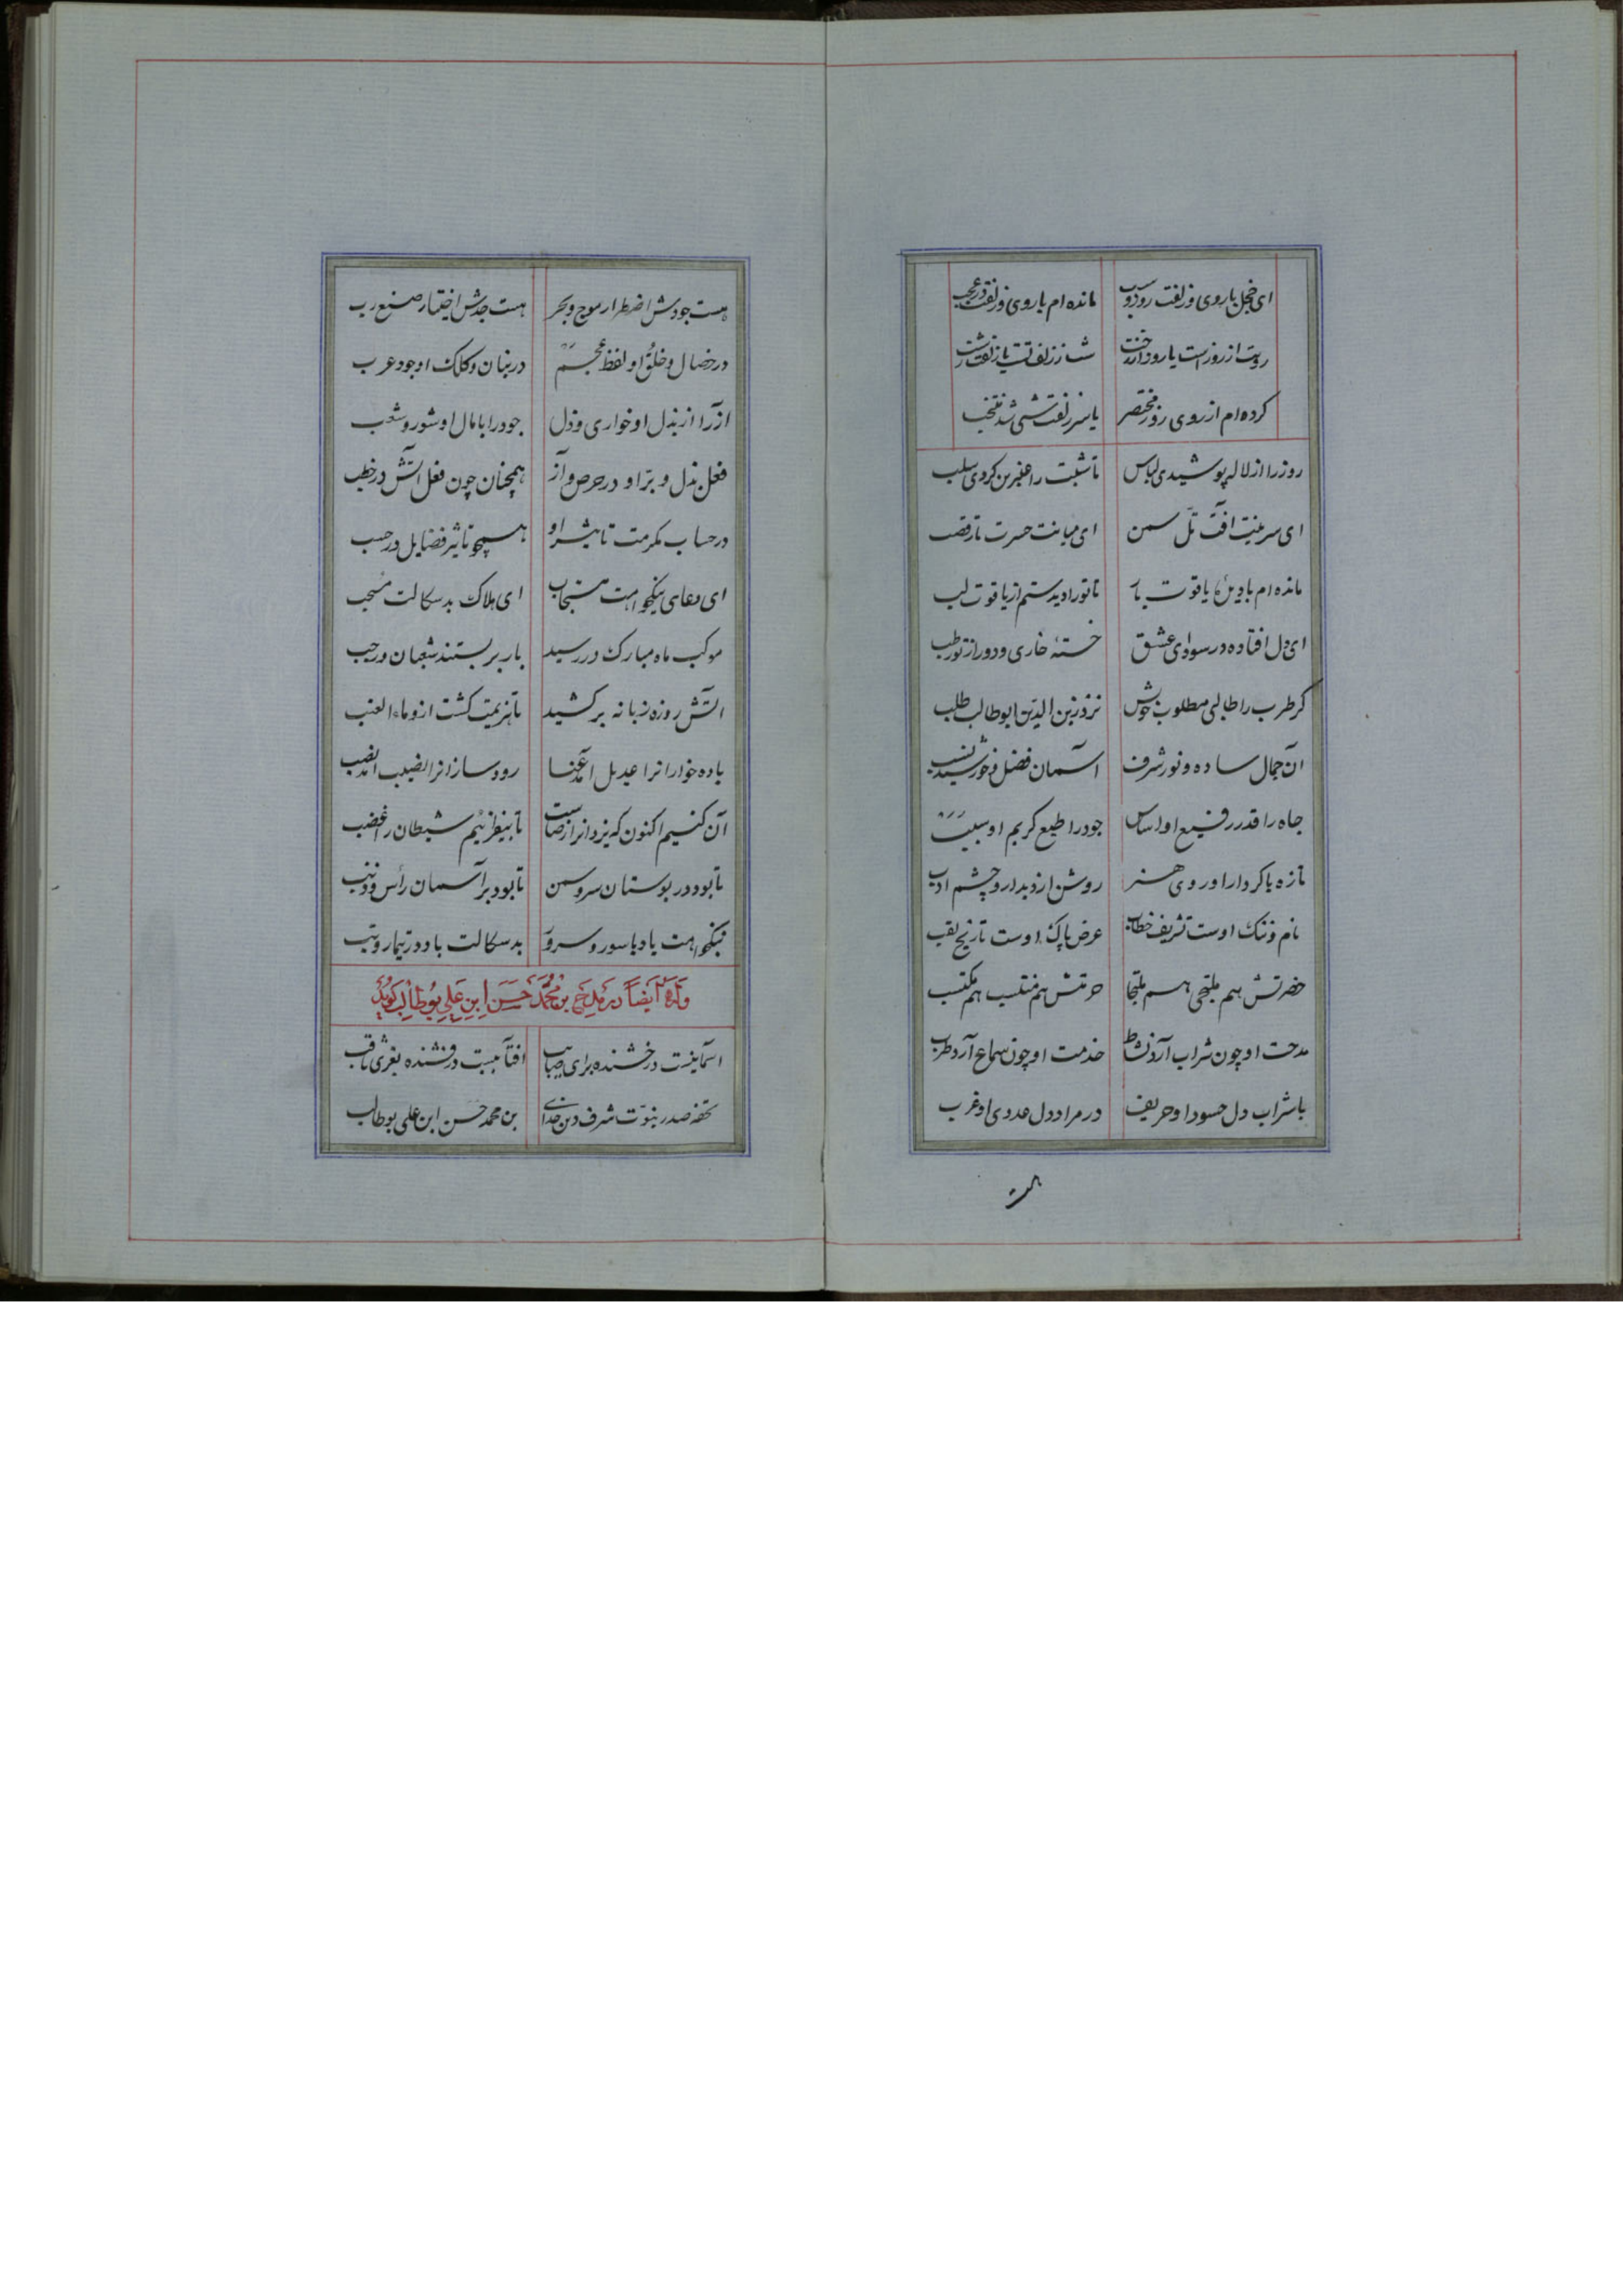 ای خجل با روی و زلفت روز و شب مانده‌ام با روی و زلفت در عجب
رویت از روز است یا روز از رخت شب ز زلف تست یا زلفت ز شب
کرده‌ام از روی روز مختصر یا سر زلفت شبی شد منتخب
روز را از لاله پوشیدی لباس تا شبت را عنبرین کردی سلب
ای سرینت آفت تل سمن ای میانت حسرت تار قصب
مانده‌ام با دیدهٔ یاقوت بار تا تو را دیدستم از یاقوت لب
ای دل افتاده در سودای عشق خستهٔ خاری و دور از تو رطب
گر طرب را طالبی مطلوب خویش نزد زین الدین ابوطالب طلب
آن جمال ساده و نور شرف آسمان فضل و خورشید نسب
جاه را قدر رفیع او اساس جود را طبع کریم او سبب
تازه با کردار او روی هنر روشن از دیدار او چشم ادب
نام و ننگ اوست تشریف خطاب عرض پاک اوست تاریخ لقب
حضرتش هم ملتجی هم ملتجا حرمتش هم منتسب هم مکتسب
مدحت او چون شراب آرد نشاط خدمت او چون سماع آرد طرب
با شراب دل حسود او حریف در مراد دل عدوی او غرب
هست
هست جودش اضطرار موج و بحر هست جدش اختیار صنع رب
در خصال و خلق او لفظ عجم در بنان و کلک او جود عرب
آز را از بذل او خواری و ذل جود را با مال او شور و شعب
فعل بذل و بر او در حرص و آز همچنان چون فعل آتش در خطب
در حساب مکرمت تاثیر او همچو تاثیر فضایل در حسب
ای دعای نیکخواهت مستجاب ای هلاک بدسکالت منتجب
موکب ماه مبارک در رسید بار بر بستند شعبان و رجب
آتش روزه زبانه بر کشید تا هزیمت گشت ازو ماء العنب
باده خوارانرا عدیل آمد عنا رود سازانرا نصیب آمد نصب
آن کنیم اکنون که یزدانرا رضاست تا بیفزائیم شیطان را غضب
تا بود در بوستان سرو و سمن تا بود بر آسمان رأس و ذنب
نیکخواهت باد با سور و سرور بدسکالت باد در تیمار و تب
وله ایضاً در مدح بن محمد حسن ابن علی بوطالب گوید
آسمانیست درخشنده برای صایب آفتابیست درفشنده بعزی ثاقب
تحفه صدر نبوت شرف دین خدای بن محمد حسن ابن علی بوطالب